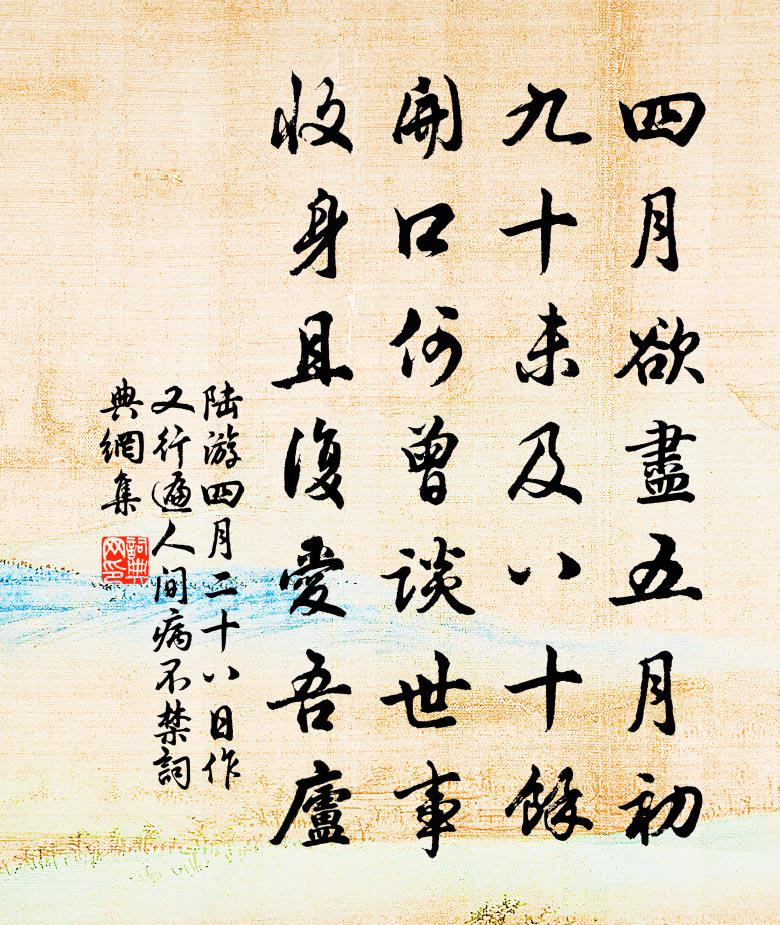 四月欲盡五月初
九十未及八十餘
開口何曾談世事
收身且復愛吾廬
陆游四月二十八日作
又行遍人间病不禁詞
典網集
詞典
网印